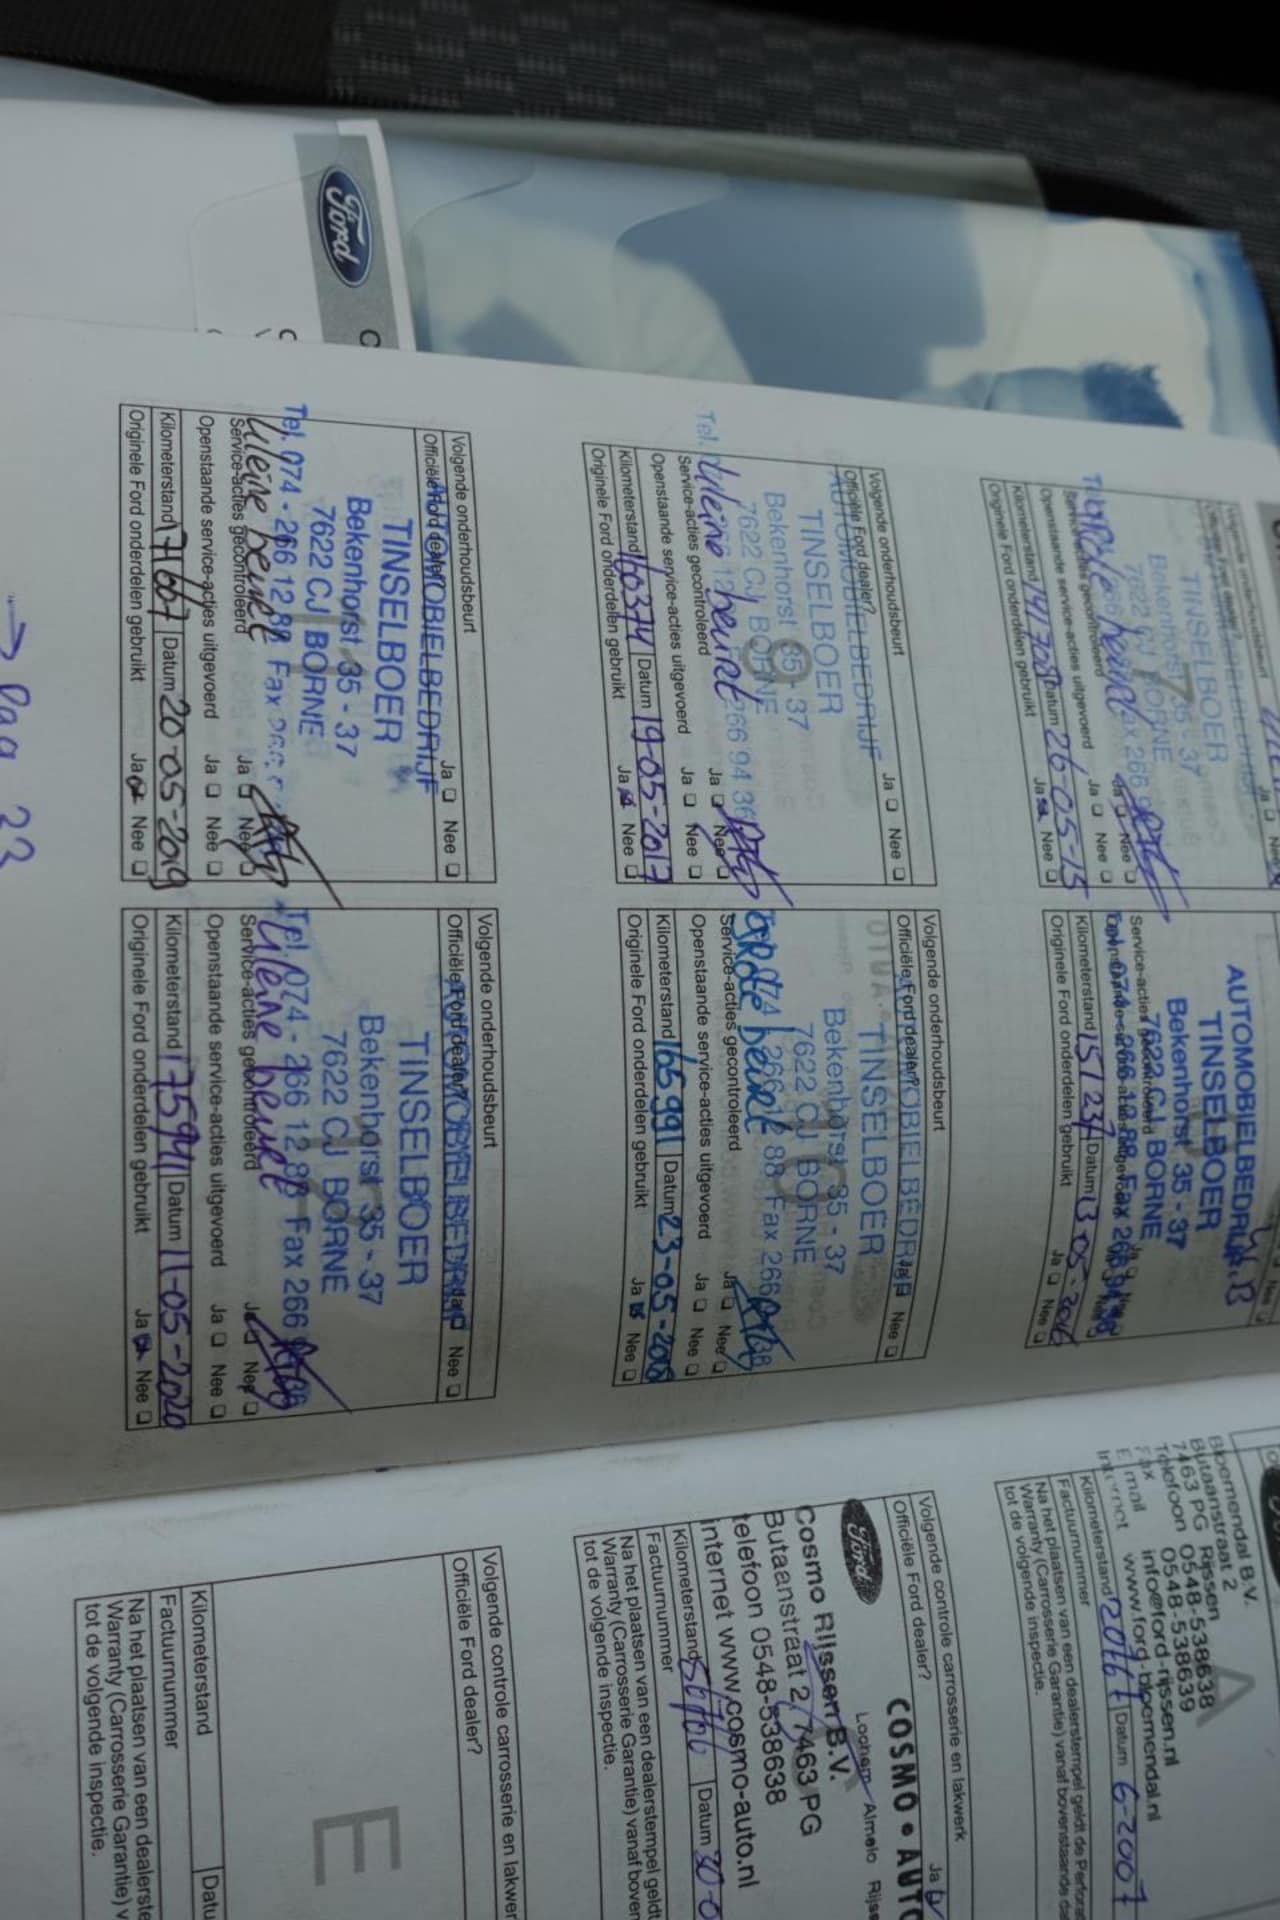 Ford
Volgende onderhoudsbeurt
TINSELBOER
Bekenhorst 35 - 37
7622 CJ BORNE
Service-acties gecontroleerd Ja Nee
Openstaande service-acties uitgevoerd Ja Nee
Kilometerstand Datum 26-05-15
Originele Ford onderdelen gebruikt Ja Nee
AUTOMOBIELBEDRIJF
TINSELBOER
Bekenhorst 35 - 37
7622 CJ BORNE
Service-acties gecontroleerd Ja
Kilometerstand 151237 Datum 13 05-2016
Originele Ford onderdelen gebruikt Ja Nee
Volgende onderhoudsbeurt
Officiële Ford dealer? Ja Nee
AUTOMOBIELBEDRIJF
TINSELBOER
Bekenhorst 35 - 37
7622 CJ BORNE
9
Kleine beurt
Service-acties gecontroleerd Ja Nee
Openstaande service-acties uitgevoerd Ja Nee
Kilometerstand 160374 Datum 19-05-2017
Originele Ford onderdelen gebruikt Ja Nee
Volgende onderhoudsbeurt
Officiële Ford dealer? Ja Nee
TINSELBOER
Bekenhorst 35 - 37
7622 CJ BORNE
10
Grote beurt
Service-acties gecontroleerd Ja Nee
Openstaande service-acties uitgevoerd Ja Nee
Kilometerstand 165991 Datum 23-05-
Originele Ford onderdelen gebruikt Ja Nee
Volgende onderhoudsbeurt
Officiële Ford dealer? Ja Nee
AUTOMOBIELBEDRIJF
TINSELBOER
Bekenhorst 35 - 37
7622 CJ BORNE
Tel. 074 - 266 12 88 Fax
Kleine beurt
Service-acties gecontroleerd Ja Nee
Openstaande service-acties uitgevoerd Ja Nee
Kilometerstand 171667 Datum 20-05-2019
Originele Ford onderdelen gebruikt Ja Nee
Volgende onderhoudsbeurt
Officiële Ford dealer? Ja Nee
AUTOMOBIELBEDRIJF
TINSELBOER
Bekenhorst 35 - 37
7622 CJ BORNE
12
Tel. 074 - 266 12 88 Fax 266
Kleine beurt
Service-acties gecontroleerd Ja Nee
Openstaande service-acties uitgevoerd Ja Nee
Kilometerstand 17591 Datum 11-05-2020
Originele Ford onderdelen gebruikt Ja Nee
→ pag 23
Bloemendal B.V.
Butaanstraat 2
7463 PG Rijssen
Telefoon 0548-538638
Fax 0548-538639
E mail info@ford-rijssen.nl
Internet www.ford-bloemendal.nl
A
Kilometerstand 20167 Datum 6-2007
Factuurnummer
Na het plaatsen van een dealerstempel geldt de
Warranty (Carrosserie Garantie) vanaf bovenstaande
tot de volgende inspectie.
Volgende controle carrosserie en lakwerk
Officiële Ford dealer? Ja
Ford
COSMO • AUTO
Lochem Almelo
Cosmo Rijssen B.V.
Butaanstraat 2, 7463 PG
telefoon 0548-538638
internet www.cosmo-auto.nl
Kilometerstand 56706 Datum 30-0
Factuurnummer
Na het plaatsen van een dealerstempel geldt
Warranty (Carrosserie Garantie) vanaf boven
tot de volgende inspectie.
Volgende controle carrosserie en lakwer
Officiële Ford dealer?
E
Kilometerstand Datu
Factuurnummer
Na het plaatsen van een dealerste
Warranty (Carrosserie Garantie) v
tot de volgende inspectie.